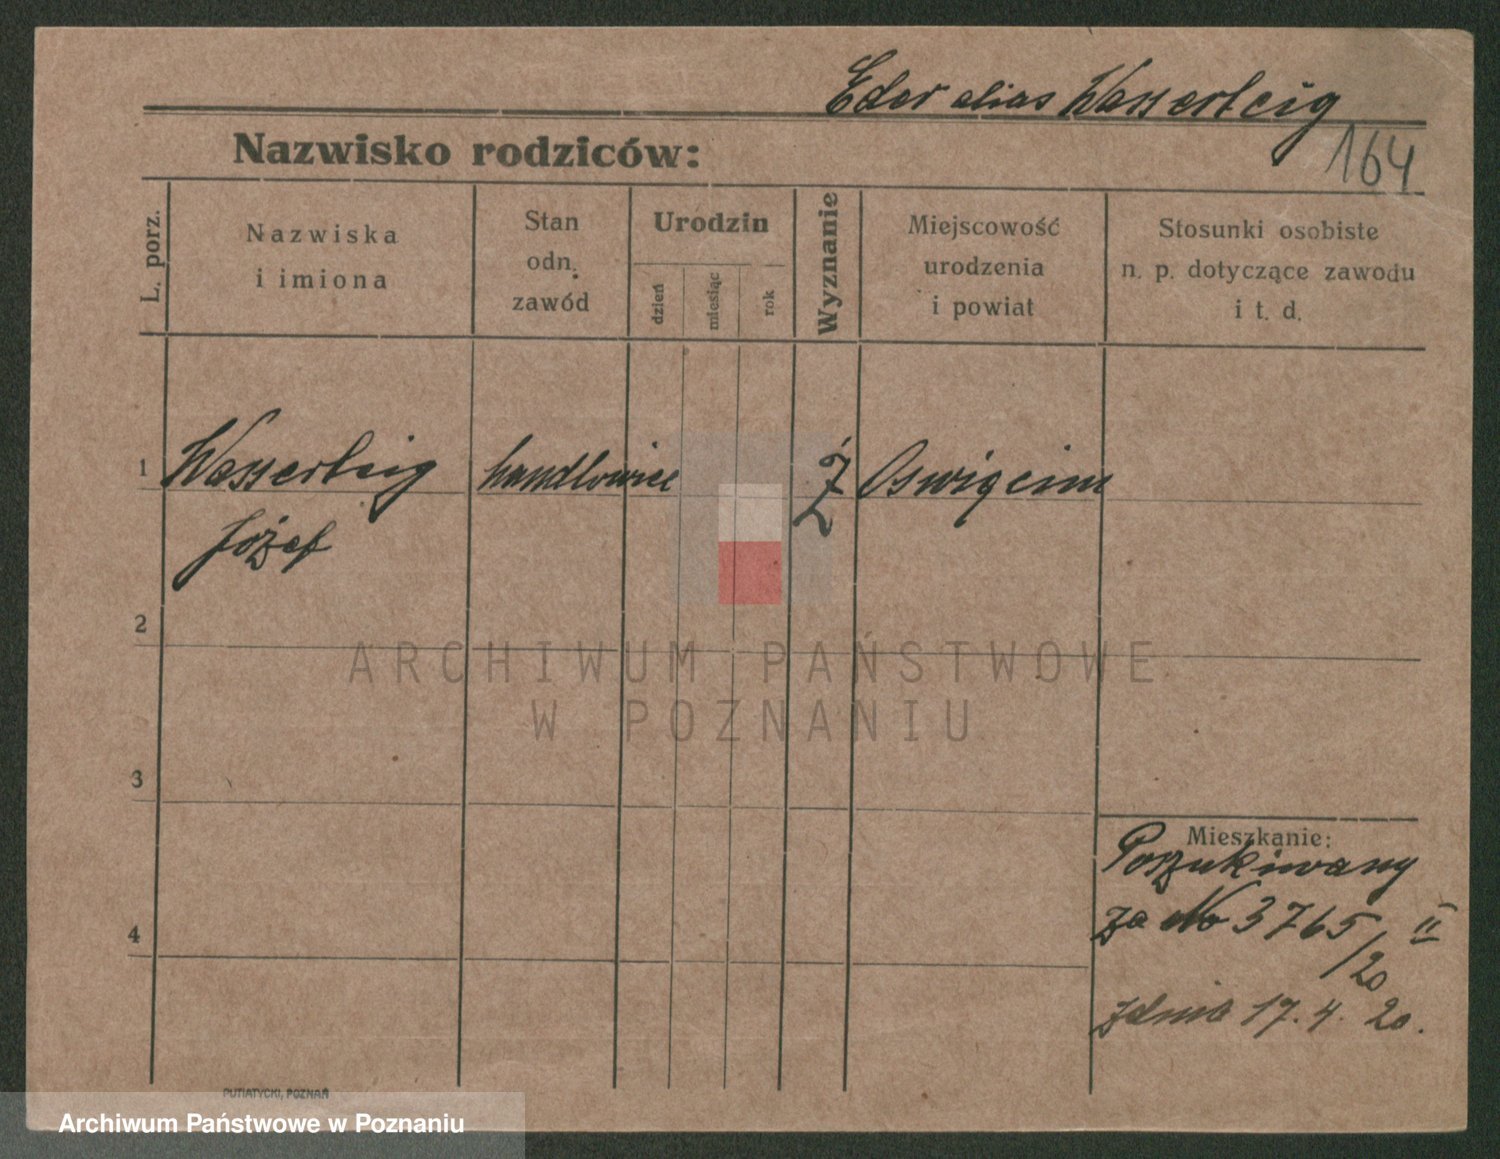 Eder alias Wasserteig
164
Nazwisko rodziców:
L. porz.
Nazwiska
i imiona
Stan
odn.
zawód
Urodzin
dzień
miesiąc
rok
Wyznanie
Miejscowość
urodzenia
i powiat
Stosunki osobiste
n. p. dotyczące zawodu
i t. d.
1 Wasserteig handlowiec Ż Oswięcim
Józef
2
3
4
Mieszkanie:
Poszukiwany
za No 3765/20 II
z dnia 17. 4. 20.
PUTIATYCKI, POZNAŃ
ARCHIWUM PAŃSTWOWE
W POZNANIU
Archiwum Państwowe w Poznaniu